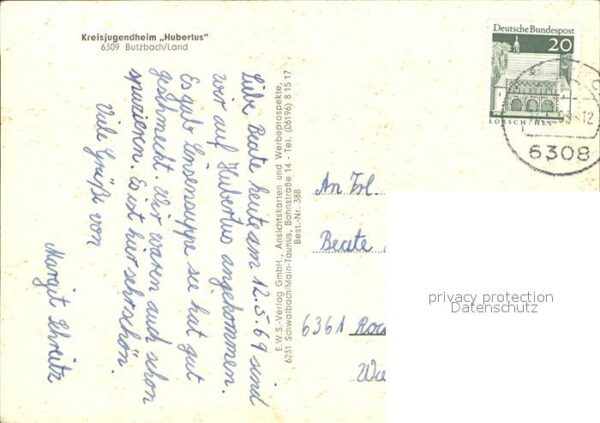 Kreisjugendheim „Hubertus"
6309 Butzbach/Land
Liebe Beate heute am 12.5.69 sind
wir auf Hubertus angekommen.
Es gab Linsensuppe sie hat gut
geschmeckt. Wir waren auch schon
spazieren. Es ist hier sehr schön.
Viele Grüße von
Margit Schreitz
E.W.S.-Verlag GmbH., Ansichtskarten und Werbeprospekte,
6231 Schwalbach/Main-Taunus, Bahnstraße 14 - Tel. (06196) 8 15 17
Best.-Nr. 388
Deutsche Bundespost
20
LORSCH/HES
-12
6308
An Frl.
Beate
6361 Roc
privacy protection
Datenschutz